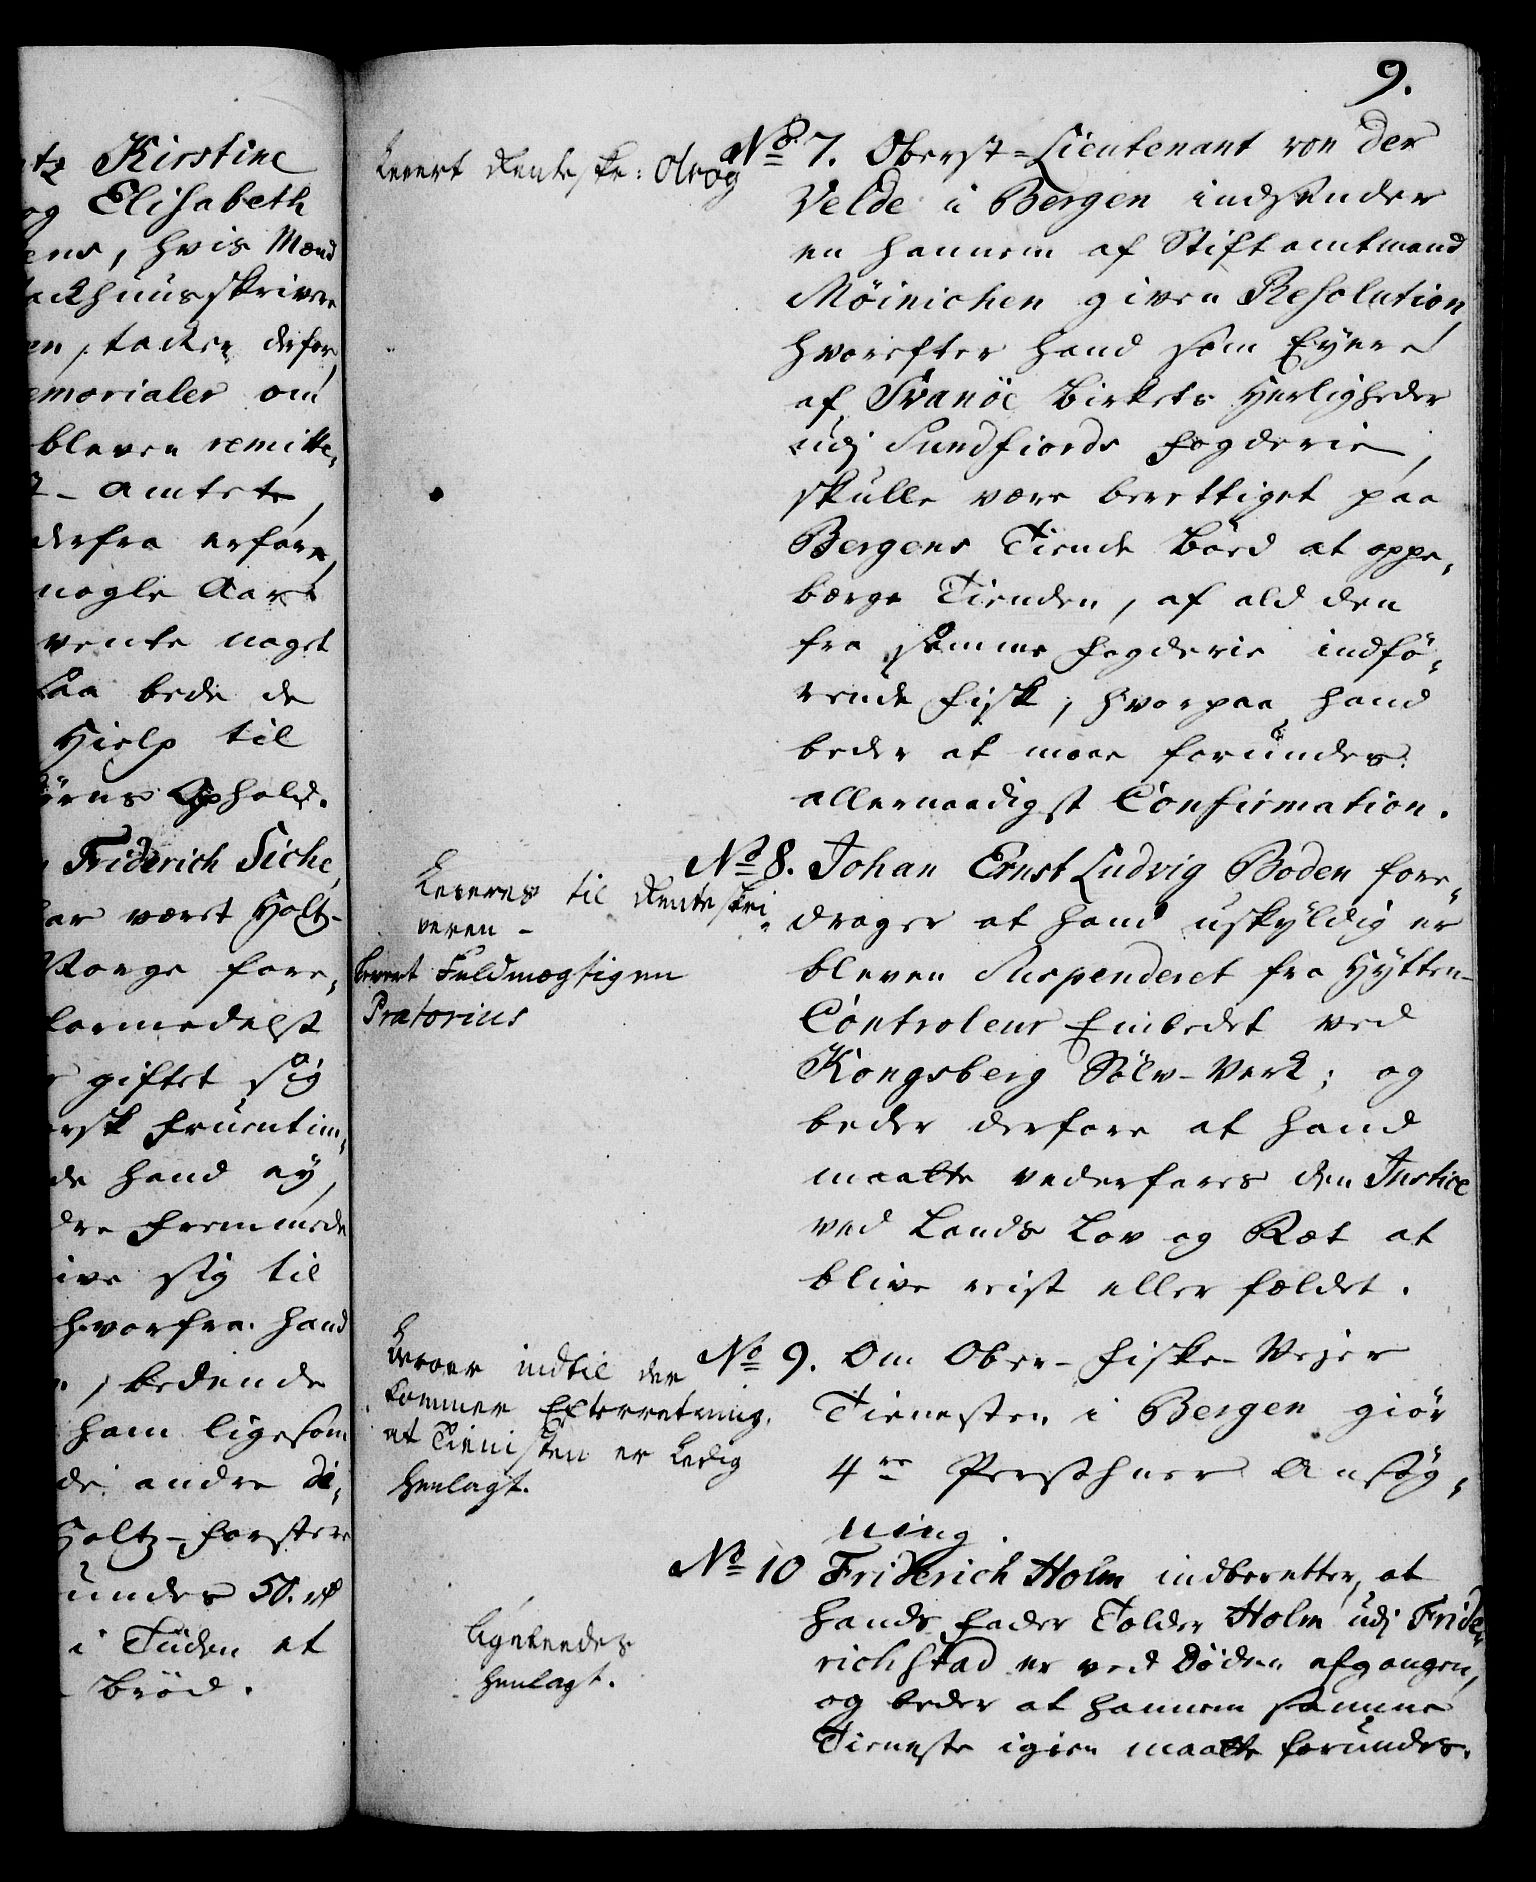 9.
Kirstine
og Elisabeth
ens, hvis Mænd
ackhuusskriver
en, tacker derfor,
emorialer om
bleven remitte,
Amtet,
derfra erfare,
nogle Aars
vente noget
saa bede de
Hielp til
örns Ophold.
Friderich Siche,
har været Holtz-
Norge fore,
formedelst
giftet sig
orsk fruentim,
de hand ey,
dre fremmede
ive sig til
hvorfra hand
, bedende
ham ligesom
de andre
Holtz-forstere
undes 50. rd
i Tiiden at
Bröd.
Levert Renteskr: Olrog
No 7. Oberst-Lieutenant von der
Velde i Bergen indsender
en hannem af Stiftamtmand
Möinichen given Resolution,
hvorefter hand som Eyere
af Svanöe Birkets Herligheder
udj Sundfiords fogderie,
skulle være berettiget paa
Bergens Tiende Boed at oppe,
bærge Tienden, af ald den
fra samme fogderie indfö,
rende fisk, hvorpaa hand
beder at maae forundes
allernaadigst Confirmation.
Leveres til Renteskri,
veren -
Levert Fuldmægtigen
Pratorius
No 8. Johan Ernst Ludvig Boden fore,
drager at hand uskyldig er
bleven Suspenderet fra Hytten-
Controleur Embedet ved
Kongsberg Sölv-Verk; og
beder derfore at hand
maatte vederfares den Justice
ved Lands Lov og Ræt at
blive reist eller fældet.
Beroer indtil der
kommer Efterretning,
at Tienisten er Ledig
Henlagt.
No 9. Om Ober-Fiske-Vejer
Tienesten i Bergen giör
4re Persohner Ansög,
ning.
Ligeleedes
Henlagt.
No 10 Friderich Holm indberetter, at
hands fader Tolder Holm udj Fride,
richstad er ved Döden afgangen,
og beder at hannem samme
Tieneste igien maatte forundes.